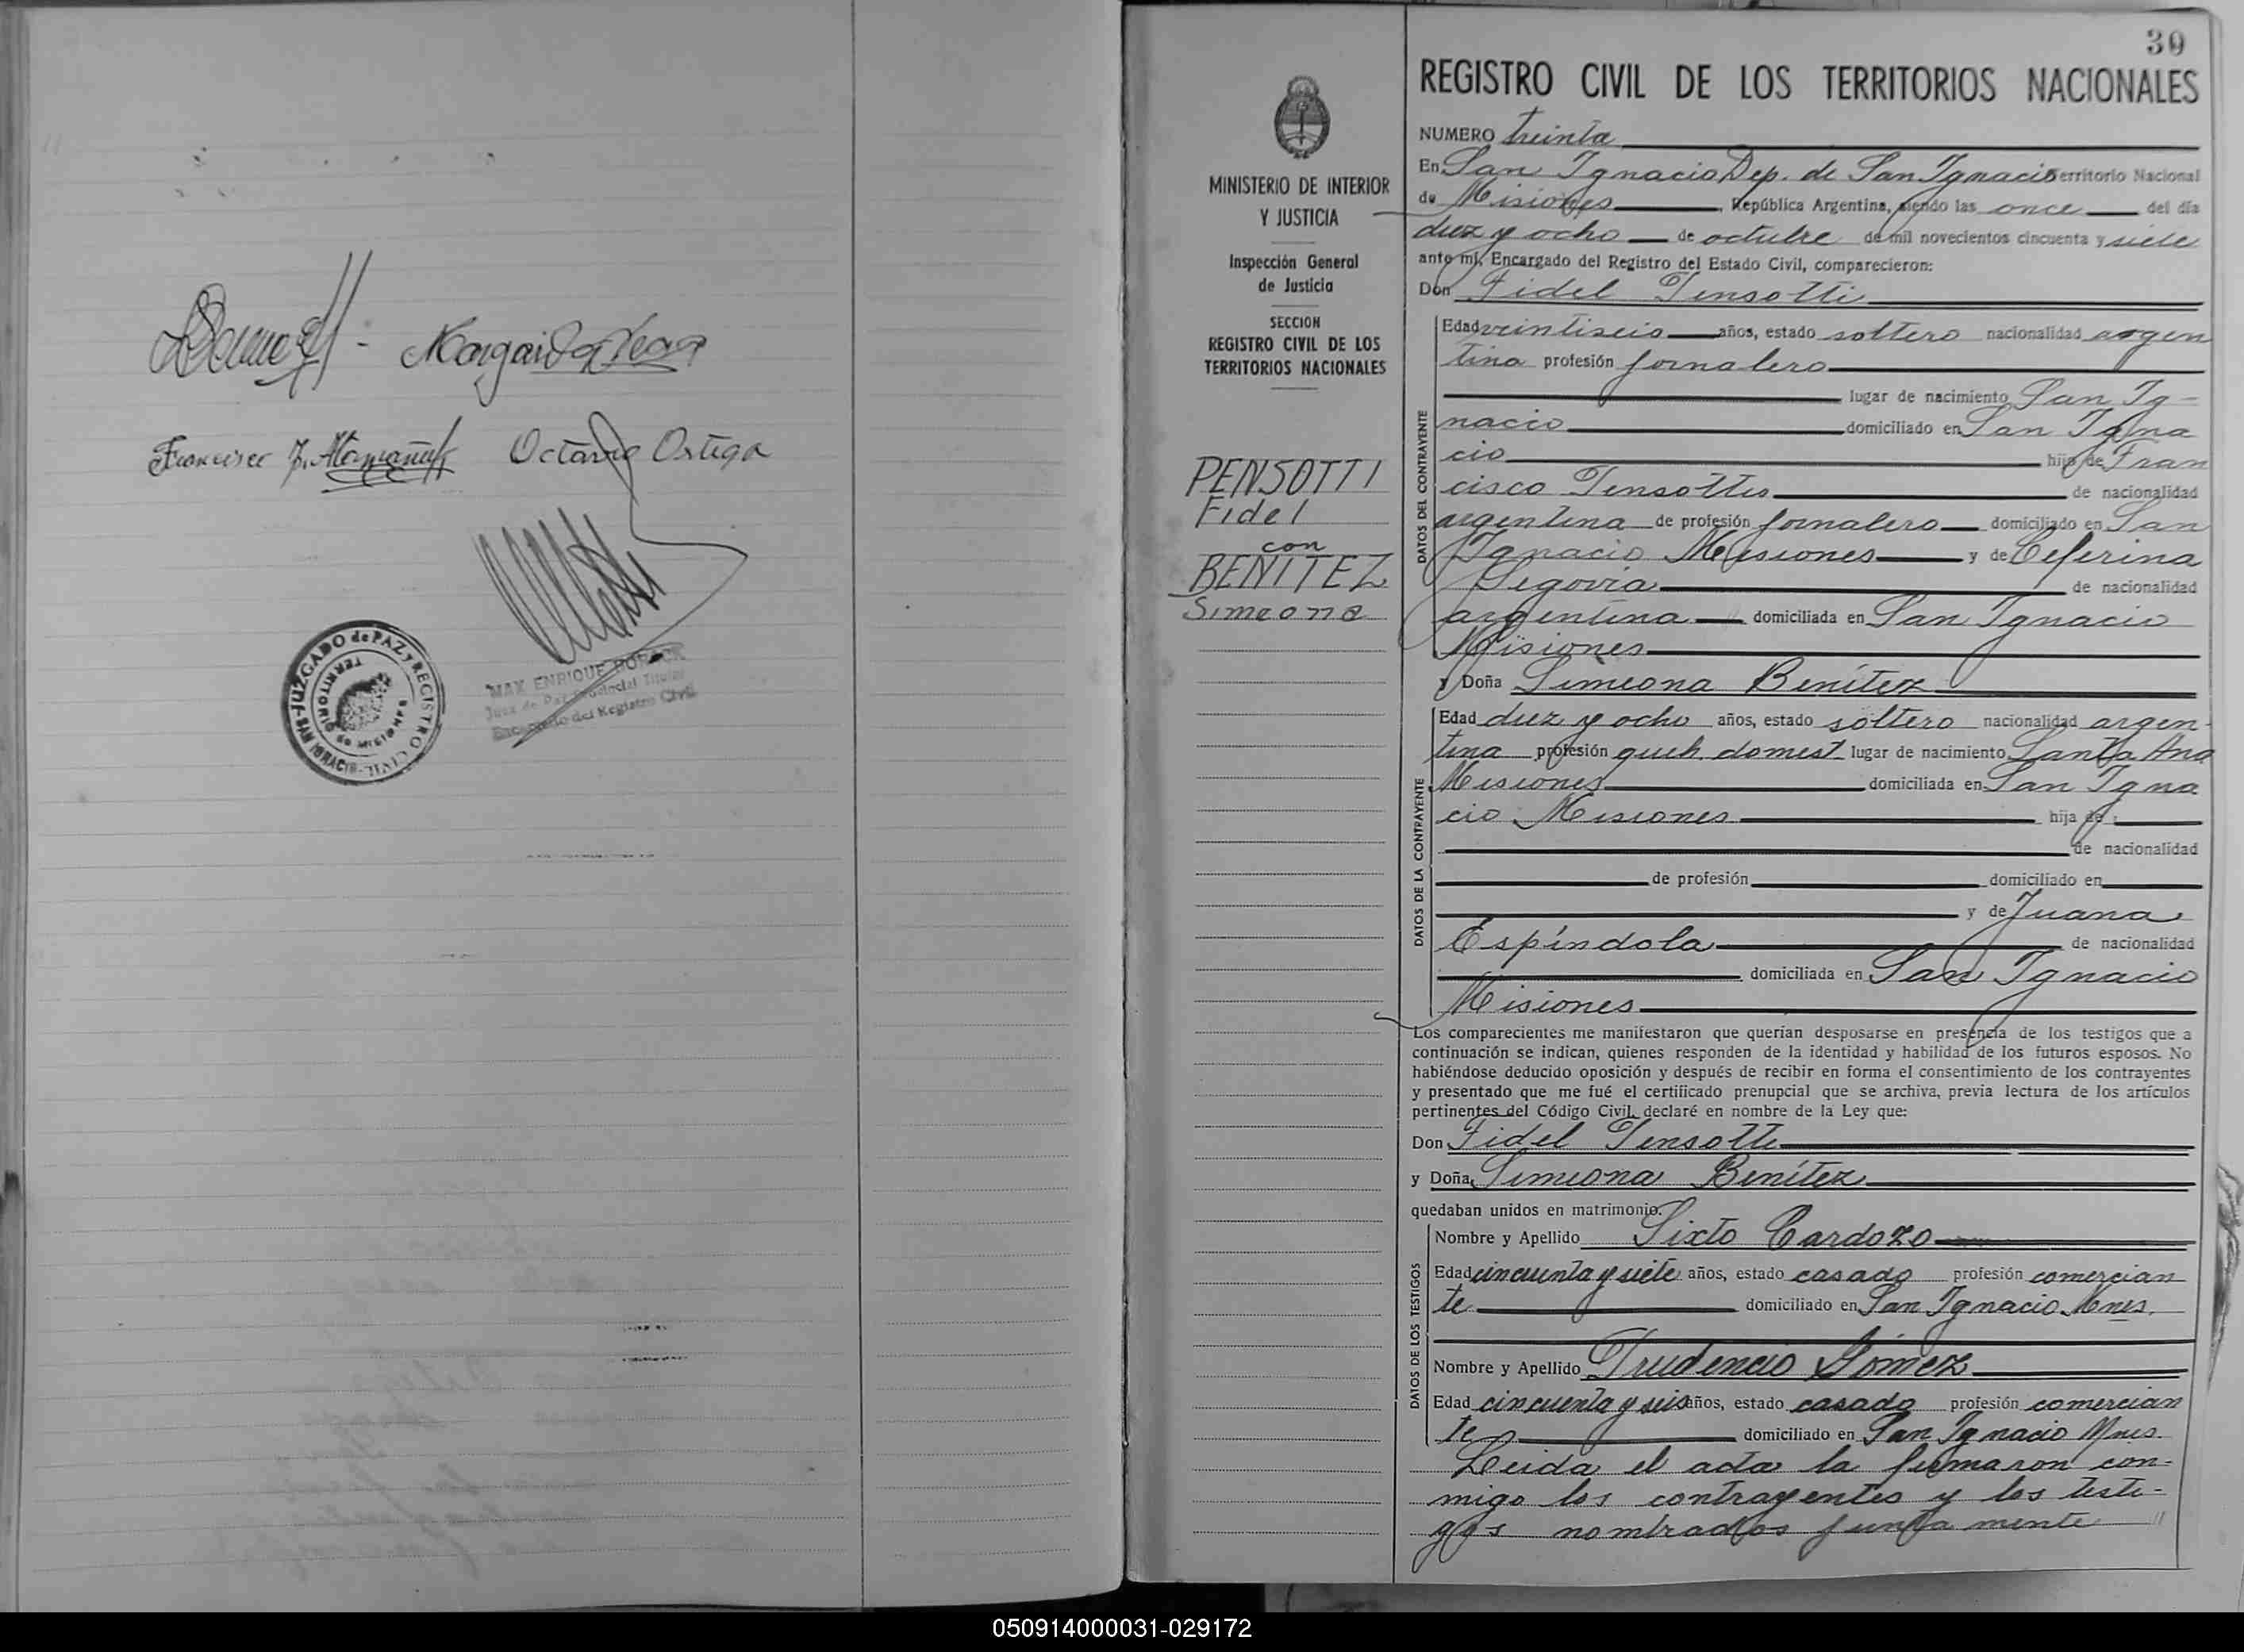 Margarita
Francisco J. Octavio Ortega
JUZGADO de PAZ y REGISTRO CIVIL - SAN IGNACIO -
TERRITORIO de MISIONES
MAX ENRIQUE
Juez de Paz Provincial Titular
Encargado del Registro Civil
30
MINISTERIO DE INTERIOR
Y JUSTICIA
Inspección General
de Justicia
SECCION
REGISTRO CIVIL DE LOS
TERRITORIOS NACIONALES
PENSOTTI
Fidel
con
BENITEZ
Simeona
REGISTRO CIVIL DE LOS TERRITORIOS NACIONALES
NUMERO treinta
En San Ignacio Dep. de San Ignacio Territorio Nacional
de Misiones, República Argentina, siendo las once del día
diez y ocho de octubre de mil novecientos cincuenta y siete
ante mí, Encargado del Registro del Estado Civil, comparecieron:
Don Fidel Pensotti
DATOS DEL CONTRAYENTE
Edad veintiseis años, estado soltero nacionalidad argen
tina profesión jornalero
lugar de nacimiento San Ig-
nacio domiciliado en San Igna
cio hijo de Fran
cisco Pensotti de nacionalidad
argentina de profesión jornalero domiciliado en San
Ignacio Misiones y de Ceferina
Segovia de nacionalidad
argentina domiciliada en San Ignacio
Misiones
y Doña Simeona Benítez
DATOS DE LA CONTRAYENTE
Edad diez y ocho años, estado soltero nacionalidad argen-
tina profesión queh. domest. lugar de nacimiento Santa Ana
Misiones domiciliada en San Igna
cio Misiones hija de
de nacionalidad
de profesión domiciliado en
y de Juana
Espíndola de nacionalidad
domiciliada en San Ignacio
Misiones
Los comparecientes me manifestaron que querían desposarse en presencia de los testigos que a
continuación se indican, quienes responden de la identidad y habilidad de los futuros esposos. No
habiéndose deducido oposición y después de recibir en forma el consentimiento de los contrayentes
y presentado que me fué el certificado prenupcial que se archiva, previa lectura de los artículos
pertinentes del Código Civil, declaré en nombre de la Ley que:
Don Fidel Pensotti
y Doña Simeona Benítez
quedaban unidos en matrimonio.
DATOS DE LOS TESTIGOS
Nombre y Apellido Sixto Cardozo
Edad cincuenta y siete años, estado casado profesión comercian
te domiciliado en San Ignacio Mnes.
Nombre y Apellido Prudencio Gómez
Edad cincuenta y seis años, estado casado profesión comercian
te domiciliado en San Ignacio Mnes.
Leida el acta la firmaron con-
migo los contrayentes y los testi-
gos nombrados juntamente //
050914000031-029172